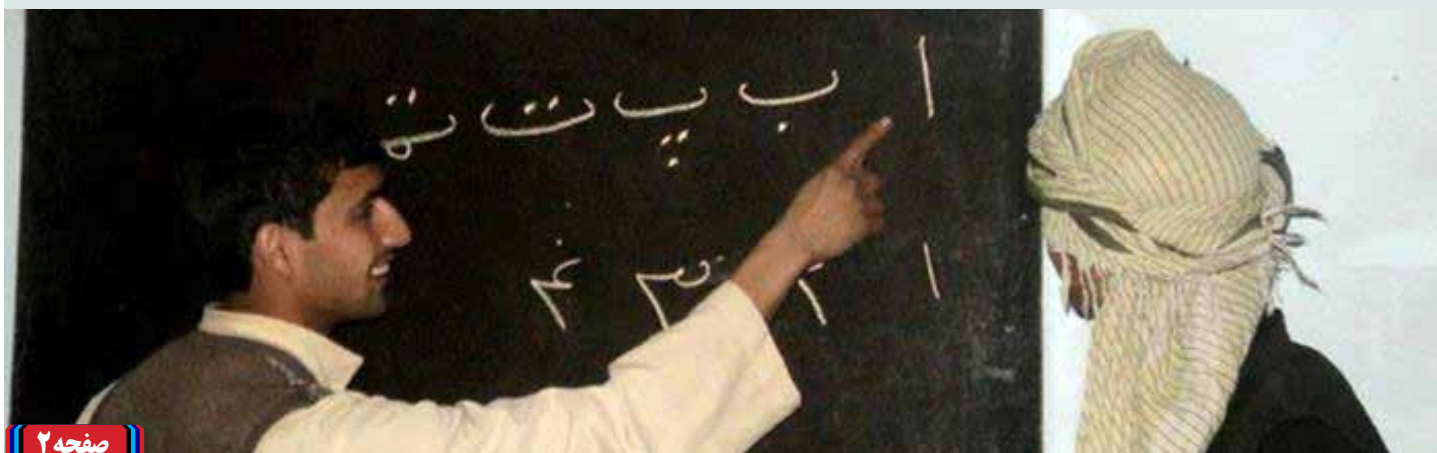 ا ب پ ت ټ
۱ ۲ ۳ ۴
صفحه ۲